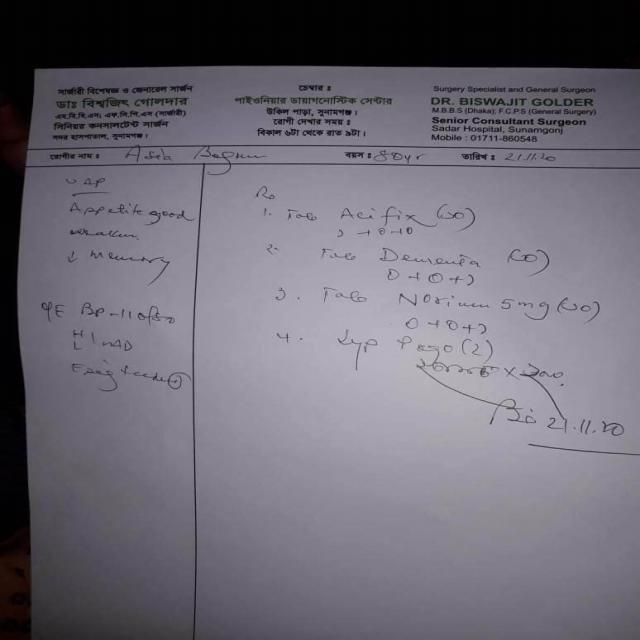 সার্জারী বিশেষজ্ঞ ও জেনারেল সার্জন
ডাঃ বিশ্বজিৎ গোলদার
এম.বি.বি.এস; এফ.সি.পি.এস (সার্জারী)
সিনিয়র কনসালটেন্ট সার্জন
সদর হাসপাতাল, সুনামগঞ্জ।
চেম্বার :
পাইওনিয়ার ডায়াগনোস্টিক সেন্টার
উকিল পাড়া, সুনামগঞ্জ।
রোগী দেখার সময় :
বিকাল ৬টা থেকে রাত ৯টা।
Surgery Specialist and General Surgeon
DR. BISWAJIT GOLDER
M.B.B.S (Dhaka); F.C.P.S (General Surgery)
Senior Consultant Surgeon
Sadar Hospital, Sunamgonj
Mobile : 01711-860548
রোগীর নাম : Begum বয়স : 80yr তারিখ : 21.11.20
Appetite good
↓ Memory
BP-110/
H
L NAD
Rx
1. Tab Acifix
2. Tab
0+0+
3. Tab 5mg
0+0+
4. Syp (2)
21.11.20